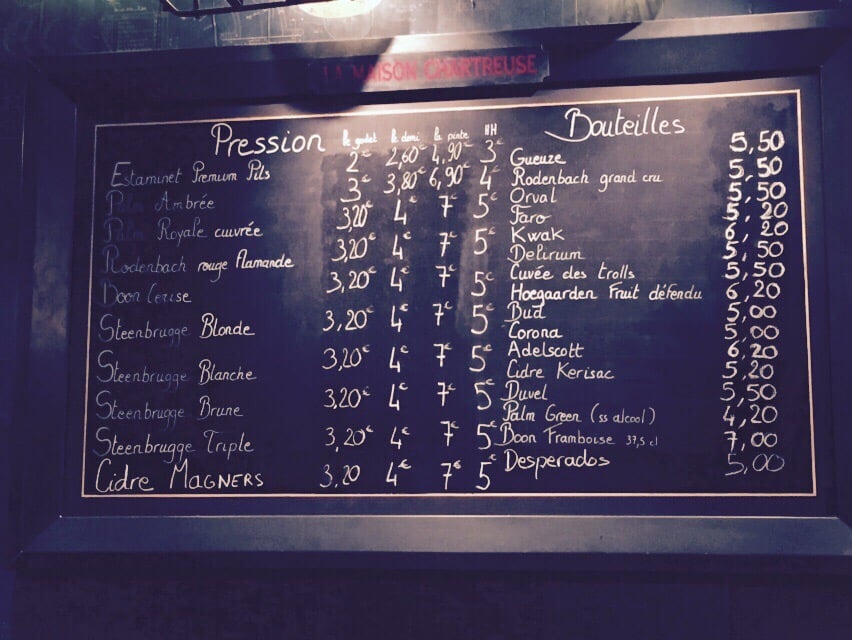 LA MAISON CHARTREUSE
Pression le galet le demi la pinte HH
Estaminet Premium Pils 2€ 2,60€ 4,90€ 3€
Palm Ambrée 3€ 3,80€ 6,90€ 4€
Palm Royale cuivrée 3,20€ 4€ 7€ 5€
Rodenbach rouge flamande 3,20€ 4€ 7€ 5€
Boon Cerise 3,20€ 4€ 7€ 5€
Steenbrugge Blonde 3,20€ 4€ 7€ 5€
Steenbrugge Blanche 3,20€ 4€ 7€ 5€
Steenbrugge Brune 3,20€ 4€ 7€ 5€
Steenbrugge Triple 3,20€ 4€ 7€ 5€
Cidre MAGNERS 3,20 4€ 7€ 5€
Bouteilles
Gueuze 5,50
Rodenbach grand cru 5,50
Orval 5,50
Faro 5,20
Kwak 6,20
Delirium 5,50
Cuvée des trolls 5,50
Hoegaarden Fruit défendu 6,20
Bud 5,00
Corona 5,00
Adelscott 6,20
Cidre Kerisac 5,20
Duvel 5,50
Palm Green (ss alcool) 4,20
Boon Framboise 37,5 cl 7,00
Desperados 5,00